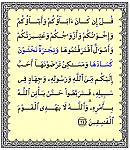 قُلْ إِن كَانَ ءَابَآؤُكُمْ وَأَبْنَآؤُكُمْ
وَإِخْوَٰنُكُمْ وَأَزْوَٰجُكُمْ وَعَشِيرَتُكُمْ
وَأَمْوَٰلٌ ٱقْتَرَفْتُمُوهَا وَتِجَٰرَةٌ تَخْشَوْنَ
كَسَادَهَا وَمَسَٰكِنُ تَرْضَوْنَهَآ أَحَبَّ
إِلَيْكُم مِّنَ ٱللَّهِ وَرَسُولِهِۦ وَجِهَادٍ فِى
سَبِيلِهِۦ فَتَرَبَّصُوا۟ حَتَّىٰ يَأْتِىَ ٱللَّهُ
بِأَمْرِهِۦ وَٱللَّهُ لَا يَهْدِى ٱلْقَوْمَ
ٱلْفَٰسِقِينَ ٢٤